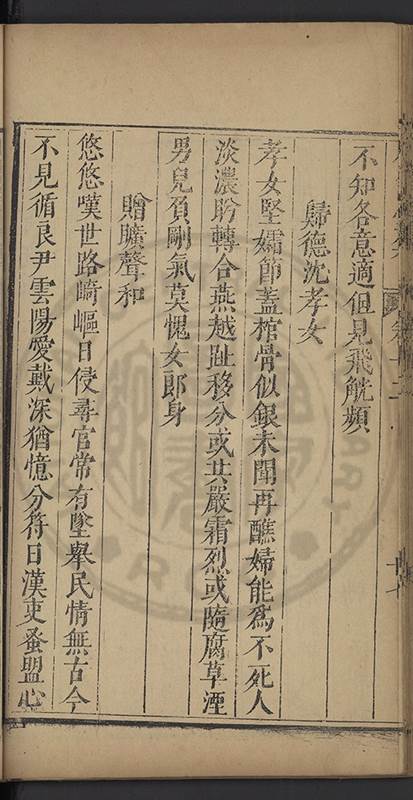 不知各意適但見飛觥頻
歸德沈孝女
孝女堅孀節蓋棺骨似銀未聞再醮婦能爲不死人
淡濃盻轉合燕越趾移分或共嚴霜烈或隨腐草湮
男兒負剛氣莫愧女郎身
贈曠聲和
悠悠嘆世路崎嶇日侵尋官常有墜舉民情無古今
不見循良尹雲陽愛戴深猶憶分符日漢吏蚤盟心